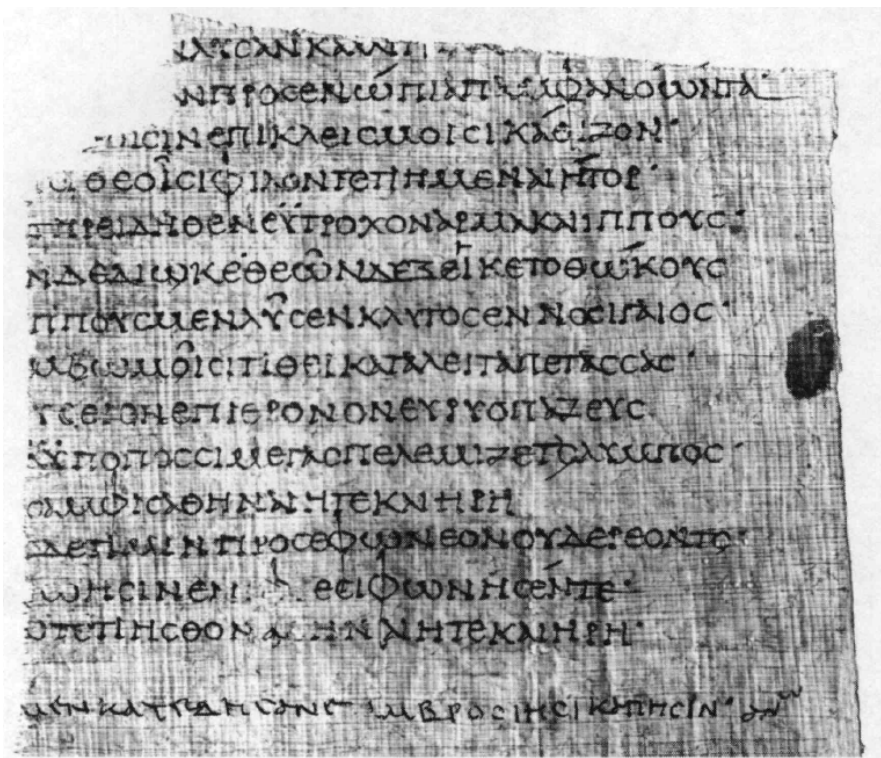 ΛΥCΑΝΚΑΛΛΙ
ΝΠΡΟCΕΝΩΠΙΑΠΑΜΦΑΝΟΩΝΤΑ
ΙCΙΝΕΠΙΚΛΕΙCΜΟΙCΙΚΑΘΕΙΖΟΝ·
ΘΕΟΙCΙΦΙΛΟΝΤΕΤΙΗΜΕΝΑΙΗΤΟΡ·
ΤΗΡΕΙΔΗΘΕΝΕΫΤΡΟΧΟΝΑΡΜΑΚΑΙΙΠΠΟΥC·
ΝΔΕΔΙΩΚΕΘΕΩΝΔΕΞΕΙΚΕΤΟΘΩΚΟΥC
ΠΠΟΥCΜΕΝΛΥCΕΝΚΛΥΤΟCΕΝΝΟCΙΓΑΙΟC·
ΜΒΩΜΟΙCΙΤΙΘΕΙΚΑΤΑΛΕΙΤΑΠΕΤΑCCΑC·
ΥCΕΙΟΝΕΠΙΘΡΟΝΟΝΕΥΡΥΟΠΑΖΕΥC
ΫΠΟΠΟCCΙΜΕΓΑCΠΕΛΕΜΙΖΕΤΟΛΥΜΠΟC·
ΑΜΦΙCΑΘΗΝΑΙΗΤΕΚΑΙΗΡΗ
ΔΕΤΙΜΙΝΠΡΟCΕΦΩΝΕΟΝΟΥΔΕΡΕΟΝΤΟ·
ΗCΙΝΕΝΙ ΕCΙΦΩΝΗCΕΝΤΕ·
ΤΕΤΙΗCΘΟΝΑΘΗΝΑΙΗΤΕΚΑΙΗΡΗ·
ΜΕΝΚΑΤΕΔΗCΑΝΕΠ ΑΜΒΡΟCΙΗCΙΚΑΠΗCΙΝ· ΑΝω